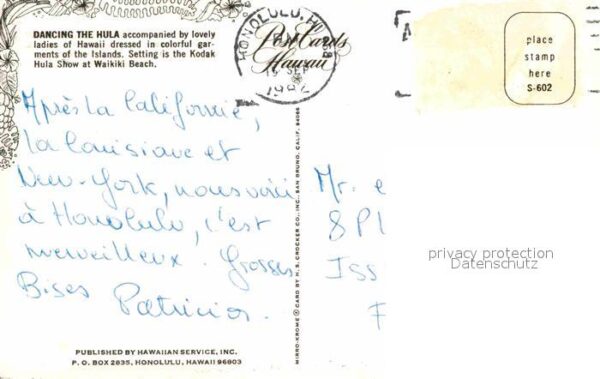 DANCING THE HULA accompanied by lovely
ladies of Hawaii dressed in colorful gar-
ments of the Islands. Setting is the Kodak
Hula Show at Waikiki Beach.
HONOLULU, HI
SEP
Post Cards
Hawaii
place
stamp
here
S-602
Après la Californie,
la Louisiane et
New-York, nous voici
à Honolulu, c'est
merveilleux. Grosses
Bises Patricia.
Mr. e
8 Pl
Iss
F
privacy protection
Datenschutz
MIRRO-KROME ® CARD BY H. S. CROCKER CO., INC. SAN BRUNO, CALIF. 94066
PUBLISHED BY HAWAIIAN SERVICE, INC.
P. O. BOX 2835, HONOLULU, HAWAII 96803